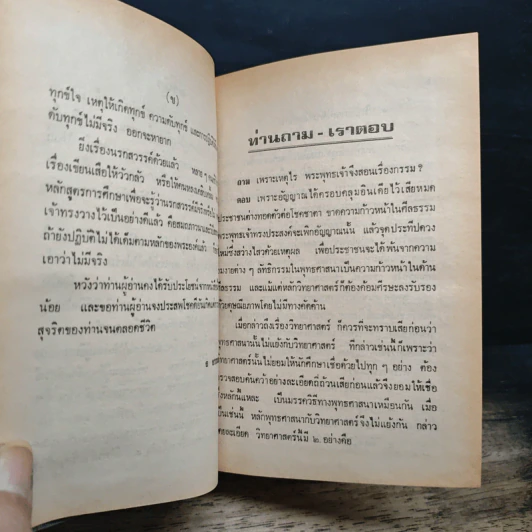 (ข)
ทุกข์ใจ เหตุให้เกิดทุกข์ ความดับทุกข์ และการปฏิบัติ
ดับทุกข์ไม่มีจริง ออกจะหายาก
ยิ่งเรื่องนรกสวรรค์ด้วยแล้ว หลาย ๆ คน
เรื่องเขียนเสือให้วัวกลัว หรือให้คนหลง
หลักสูตรการศึกษาเพื่อจะรู้ว่านรกสวรรค์
เจ้าทรงวางไว้เป็นอย่างดีแล้ว คือสมถภาวนา
ถ้ายังปฏิบัติไม่ได้เต็มตามหลักของพระองค์แล้ว
เอาว่าไม่มีจริง
หวังว่าท่านผู้อ่านคงได้รับประโยชน์จาก
น้อย และขอท่านผู้อ่านจงประสพโชคดี
สุจริตของท่านจนตลอดชีวิต
ท่านถาม - เราตอบ
ถาม เพราะเหตุไร พระพุทธเจ้าจึงสอนเรื่องกรรม ?
ตอบ เพราะอัญญาณได้ครอบคลุมอินเดียไว้เสียหมด
ประชาชนต่างทอดตัวต่อโชคชาตา ขาดความก้าวหน้าในศีลธรรม
พระพุทธเจ้าทรงประสงค์จะเพิกอัญญาณนั้น แล้วจุดประทีปดวง
ใหม่ซึ่งสว่างไสวด้วยเหตุผล เพื่อประชาชนจะได้พ้นจากความ
งมงายต่าง ๆ ลัทธิกรรมในพุทธศาสนาเป็นความก้าวหน้าในด้าน
และแม้แต่หลักวิทยาศาสตร์ก็ต้องค้อมศีรษะลงรับรอง
ด้วยดุษณียภาพโดยไม่มีทางคัดค้าน
เมื่อกล่าวถึงเรื่องวิทยาศาสตร์ ก็ควรที่จะทราบเสียก่อนว่า
พุทธศาสนานั้นไม่แย้งกับวิทยาศาสตร์ ที่กล่าวเช่นนี้ก็เพราะว่า
วิทยาศาสตร์นั้นไม่ยอมให้นักศึกษาเชื่อด้วยไปทุก ๆ อย่าง ต้อง
ตรวจสอบค้นคว้าอย่างละเอียดถี่ถ้วนเสียก่อนแล้วจึงยอมให้เชื่อ
หลักนี้แหละ เป็นมรรควิธีทางพุทธศาสนาเหมือนกัน เมื่อ
เป็นเช่นนี้ หลักพุทธศาสนากับวิทยาศาสตร์จึงไม่แย้งกัน กล่าว
โดยละเอียด วิทยาศาสตร์นี้มี ๒ อย่างคือ